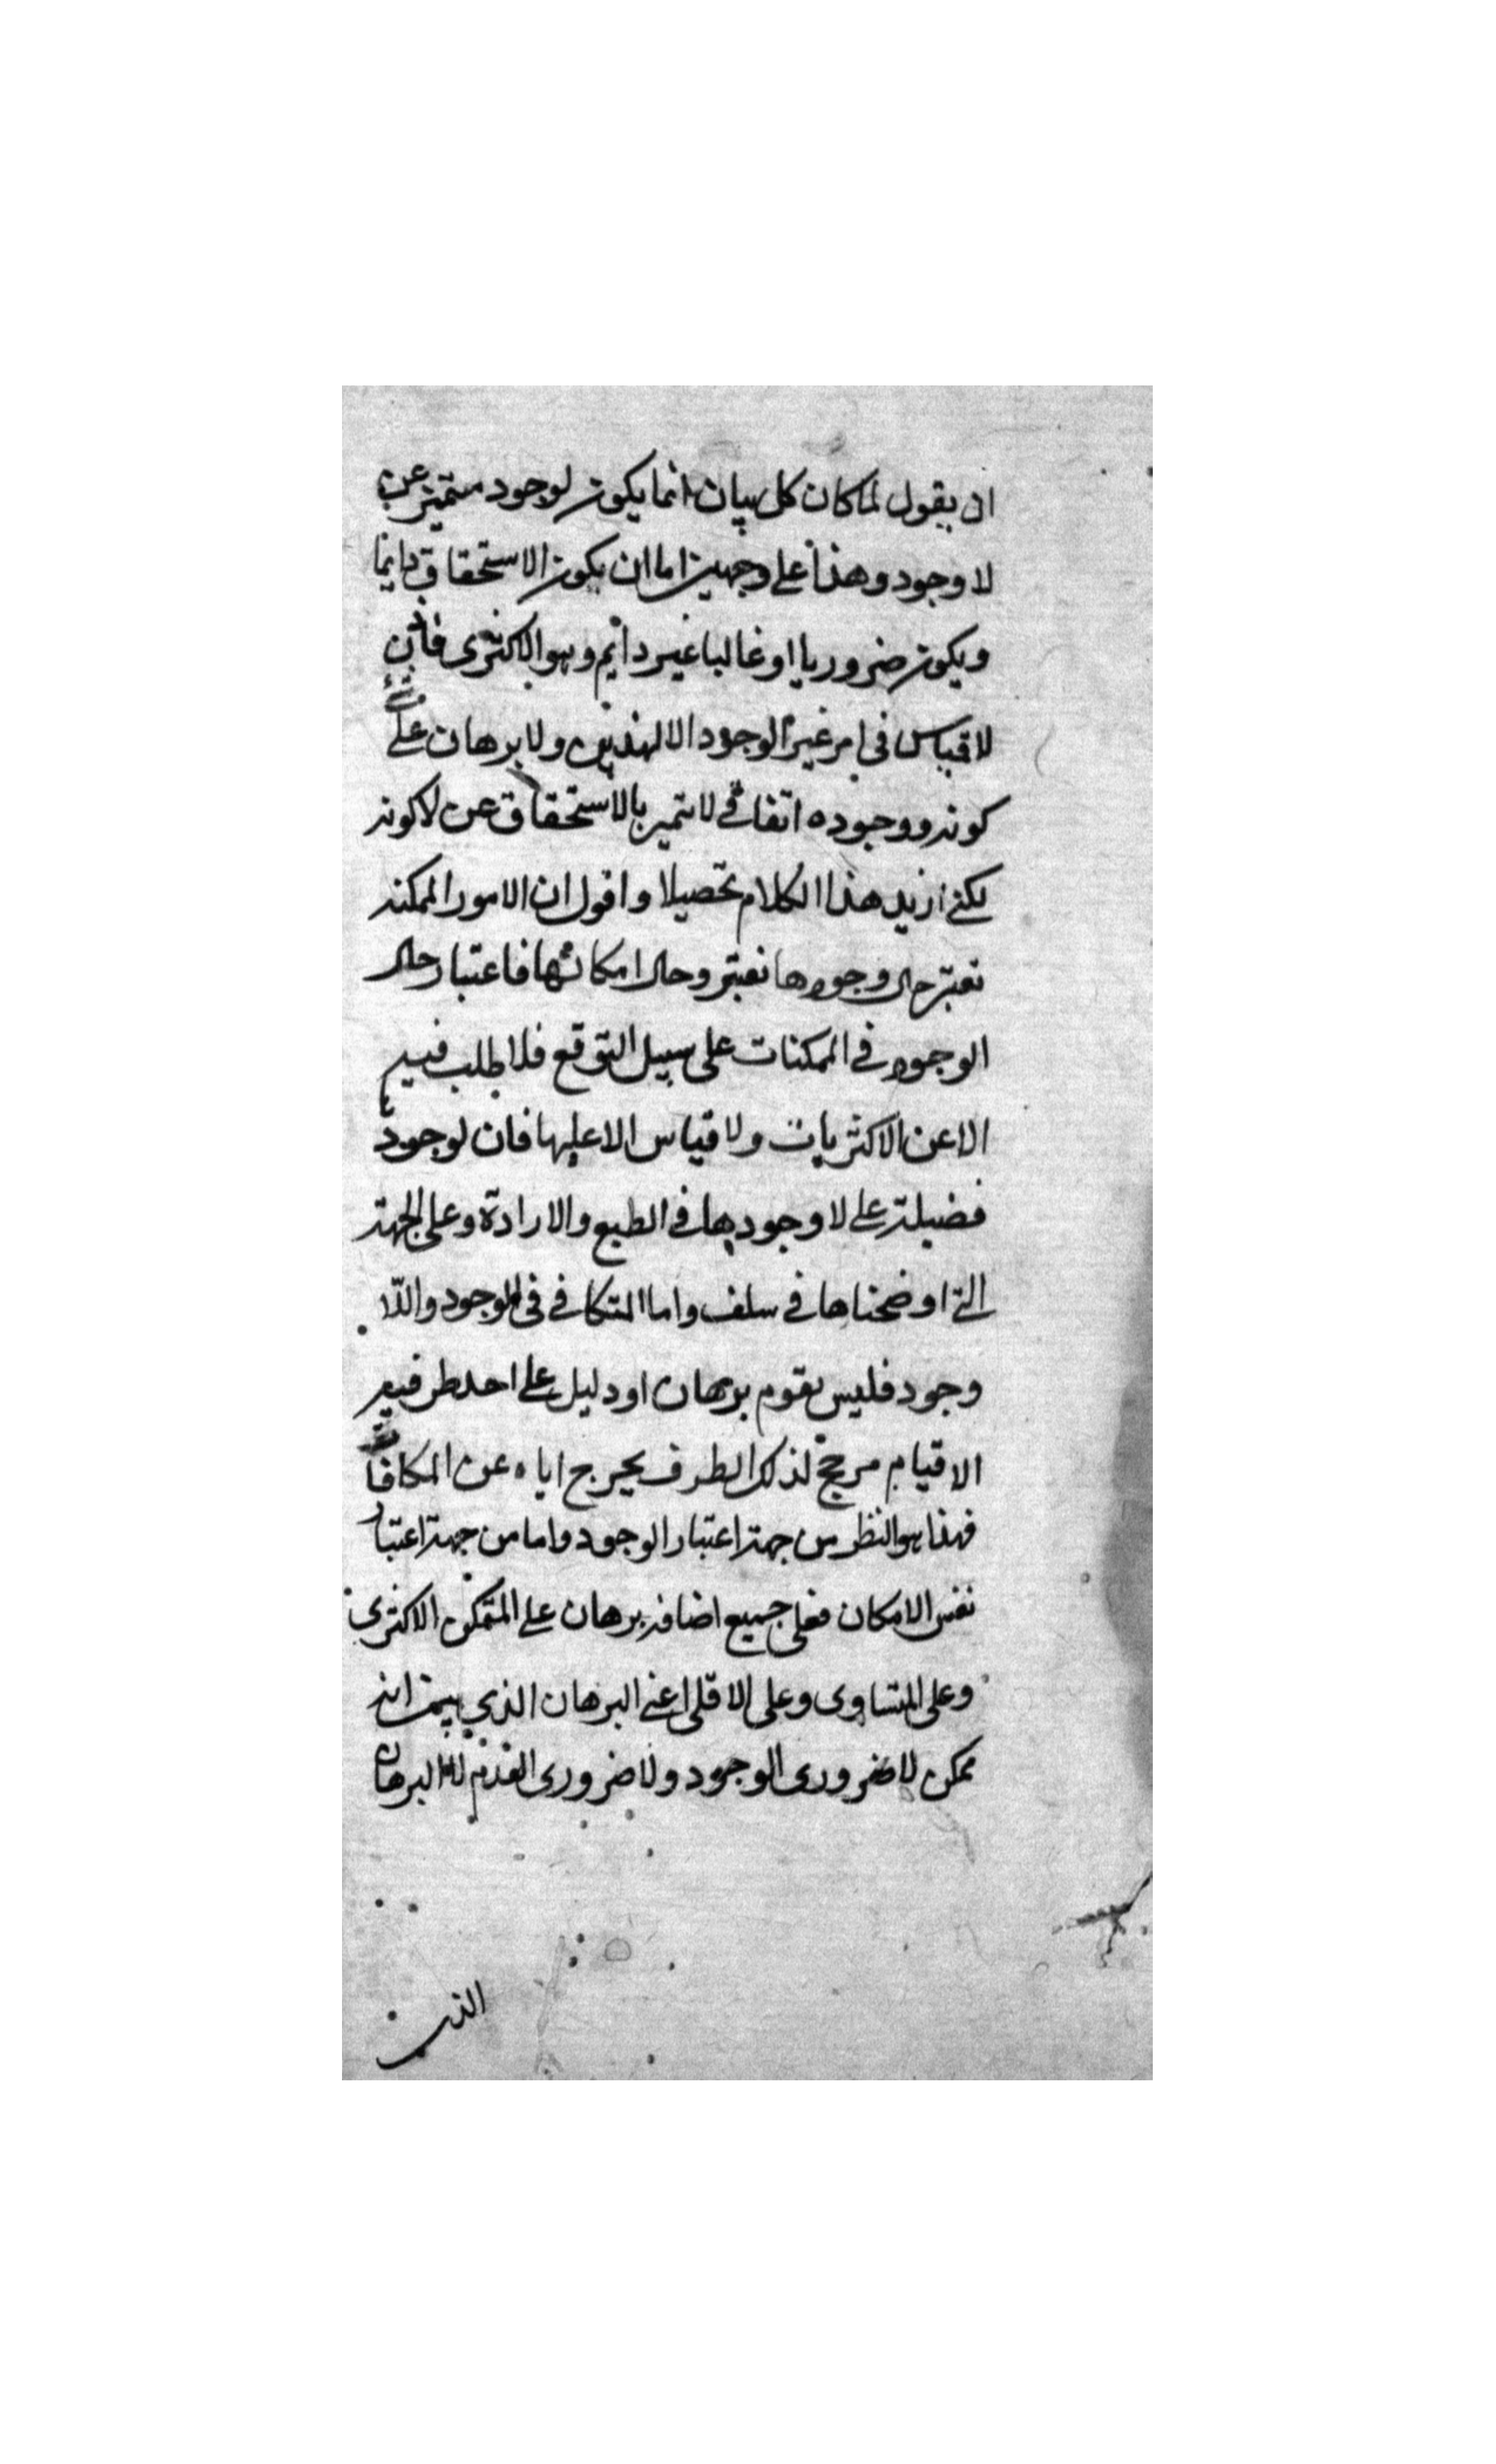 ان يقول لما كان كل بيان انما يكون لوجود متميز عن
لا وجود وهذا على وجهين اما ان يكون الاستحقاق دايما
ويكون ضروريا او غالبا غير دائم وهو الاكثرى فاذن
لا قياس فى امر غير الوجود الا لهذين ولا برهان على شئ
كونه ووجوده اتفاقى لا تميز بالاستحقاق عن لا كونه
لكنى ازيد هذا الكلام تحصيلا واقول ان الامور الممكنه
تعتبر حال وجودها تعتبر وحال امكانها فاعتبار حال
الوجود فى الممكنات على سبيل التوقع فلا طلب فيه
الا عن الاكثريات ولا قياس الا عليها فان لوجودها
فضيلة على لا وجودها فى الطبع والارادة وعلى الجهة
التى اوضحناها فى سلف واما المتكافى فى الوجود واللا
وجود فليس يقوم برهان او دليل على احد طرفيه
الا قيام مرجح لذلك الطرف يخرج اياه عن المكافأة
فهذا هو النظر من جهة اعتبار الوجود واما من جهة اعتبار
نفس الامكان فعلى جميع اضافه برهان على الممكن الاكثرى
وعلى المتساوى وعلى الاقلى اعنى البرهان الذي يبين انه
ممكن لا ضرورى الوجود ولا ضرورى العدم البرهان
الذى